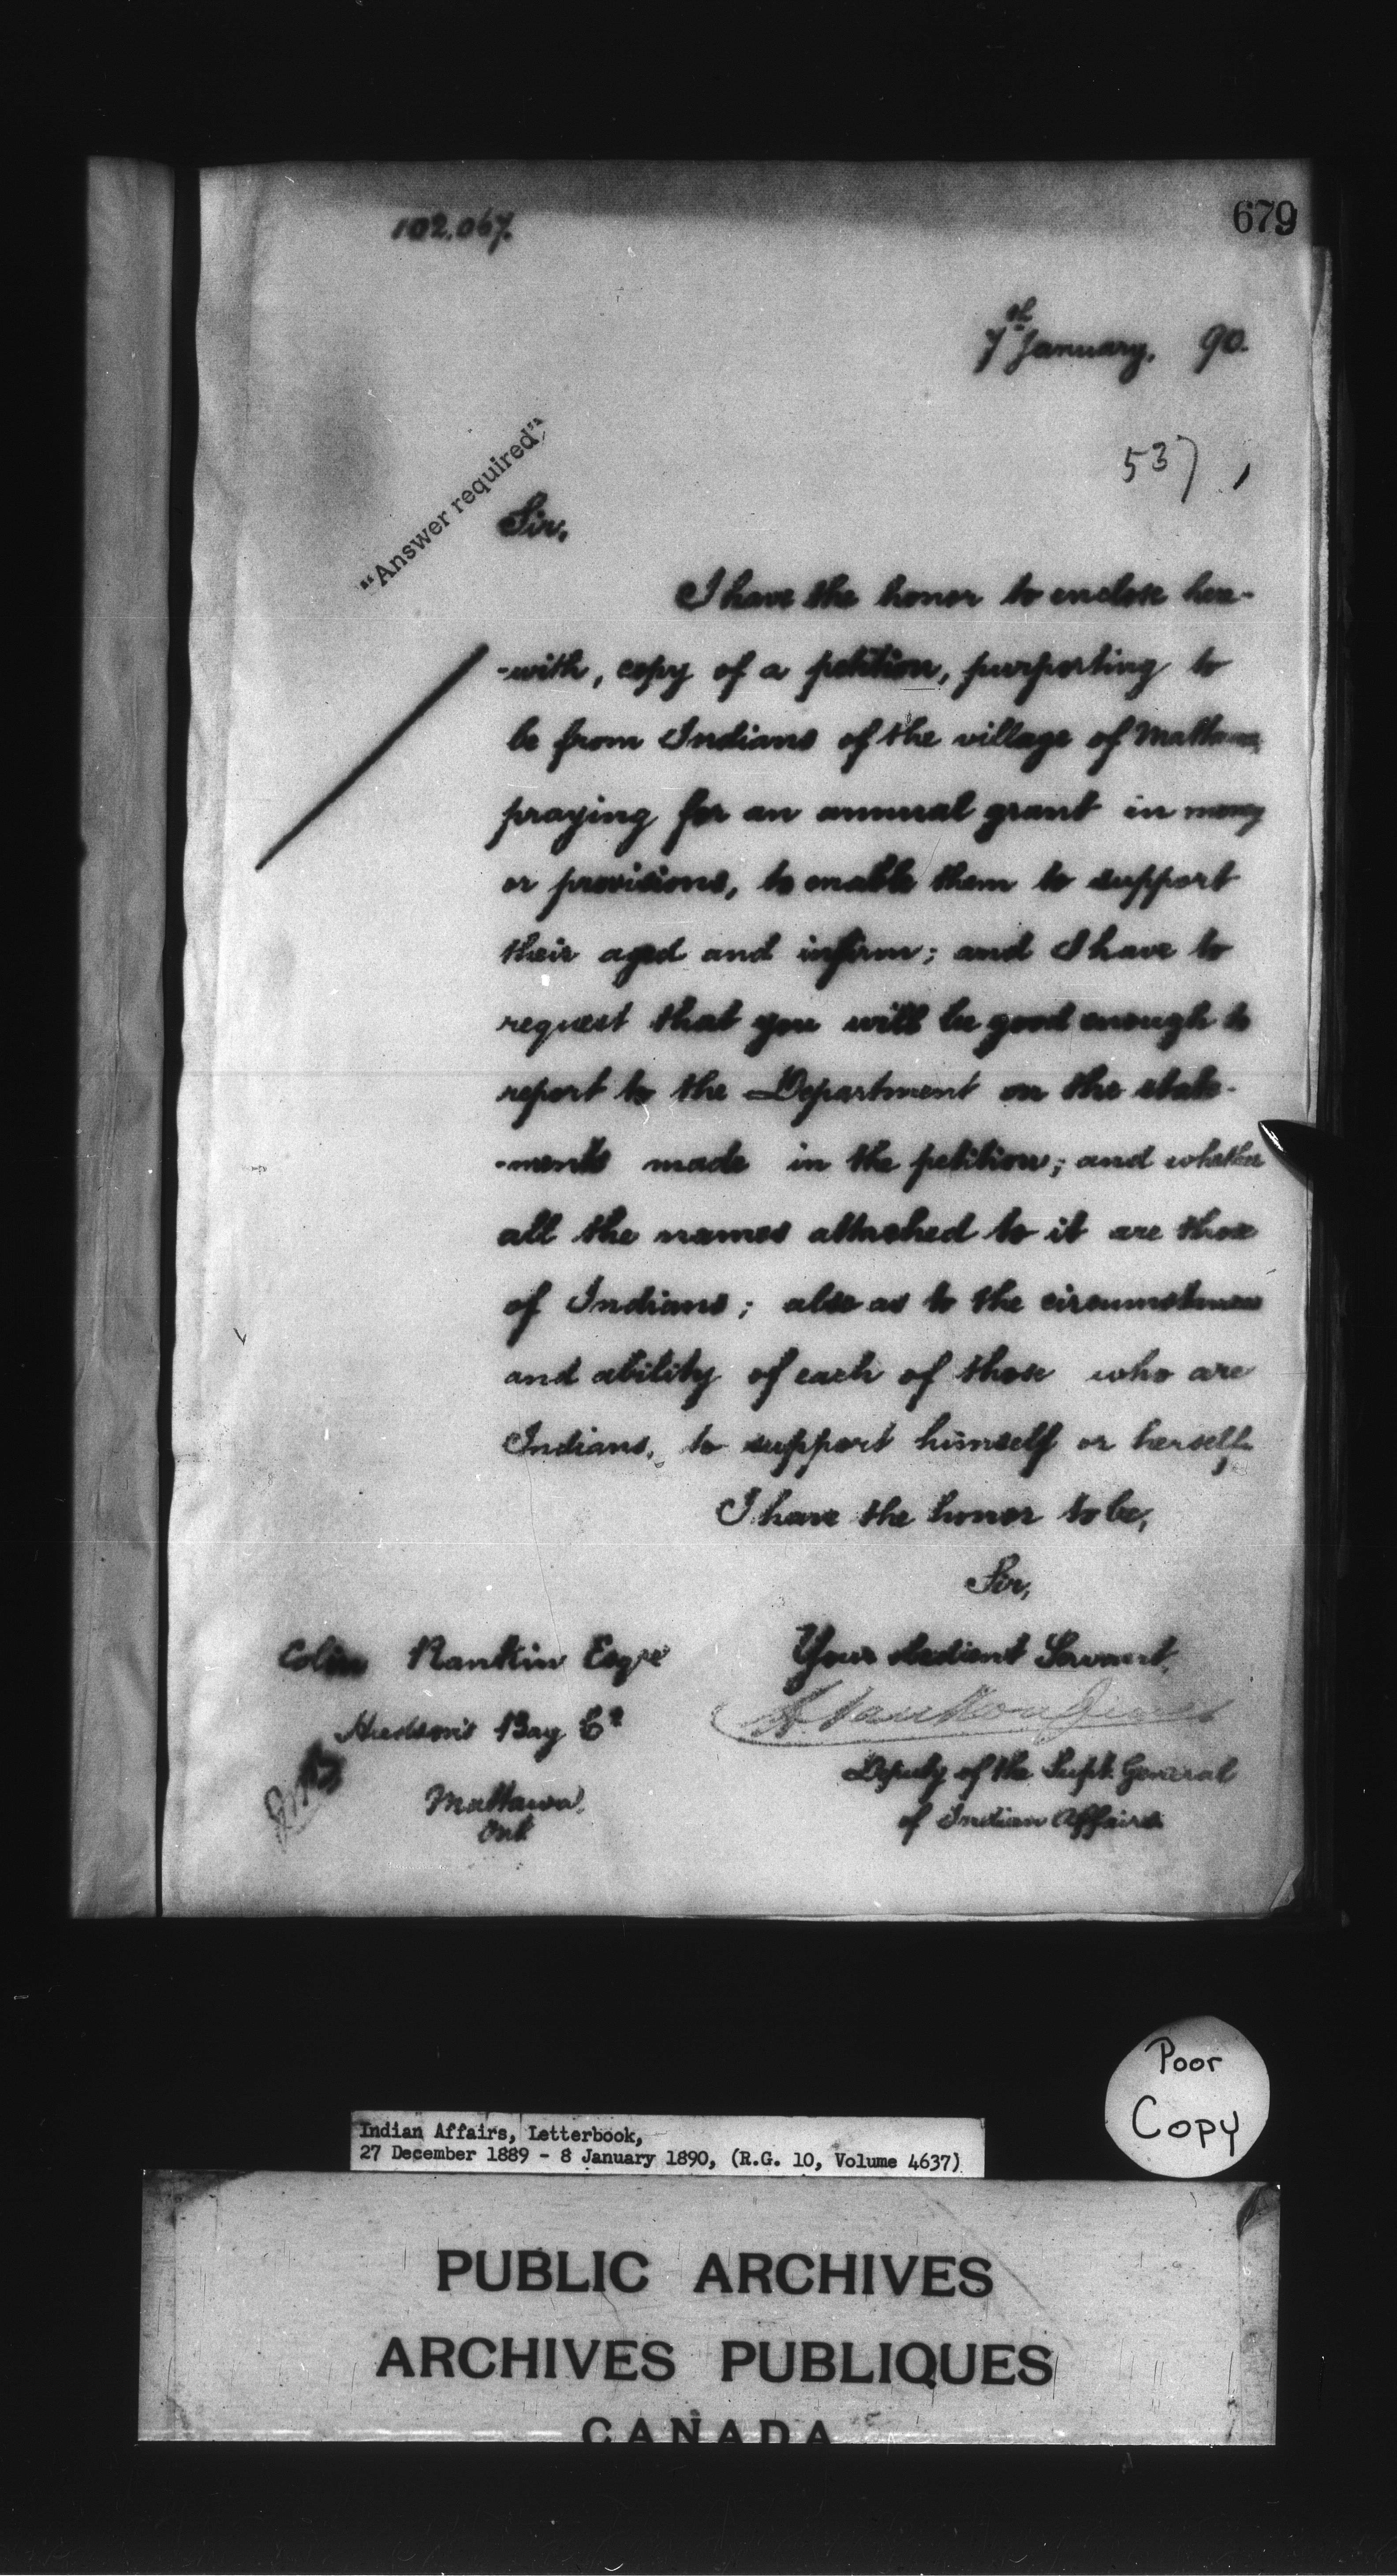 102.067.
679
7th January, 90.
537
"Answer required"
Sir,
I have the honor to enclose here-
-with, copy of a petition, purporting to
be from Indians of the village of Mattawa,
praying for an annual grant in money
or provisions, to enable them to support
their aged and infirm; and I have to
request that you will be good enough to
report to the Department on the state-
-ments made in the petition; and whether
all the names attached to it are those
of Indians; also as to the circumstances
and ability of each of those who are
Indians, to support himself or herself.
I have the honor to be,
Sir,
Your obedient Servant,
L. VanKoughnet
Deputy of the Supt. General
of Indian Affairs
Colin Rankin Esqre
Hudson's Bay Co
Mattawa,
Ont
Poor
Copy
Indian Affairs, Letterbook,
27 December 1889 - 8 January 1890, (R.G. 10, Volume 4637)
PUBLIC ARCHIVES
ARCHIVES PUBLIQUES
CANADA